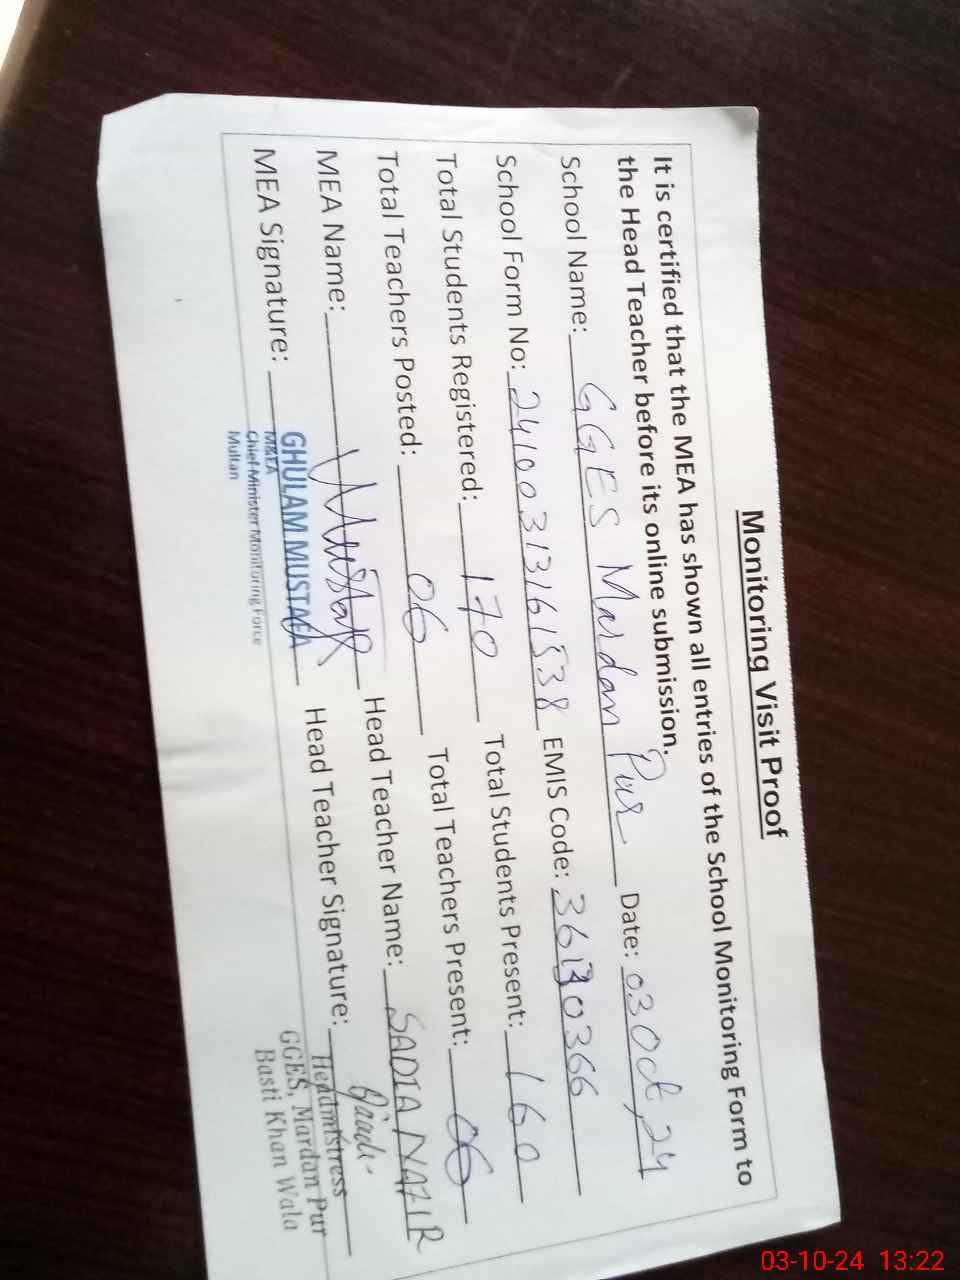 Monitoring Visit Proof
It is certified that the MEA has shown all entries of the School Monitoring Form to
the Head Teacher before its online submission.
School Name: GGES Mardan Pur Date: 03 Oct, 24
School Form No: 24100313161538 EMIS Code: 36130366
Total Students Registered: 170 Total Students Present: 160
Total Teachers Posted: 06 Total Teachers Present: 06
MEA Name: Mustafa Head Teacher Name: SADIA NAZIR
MEA Signature: Head Teacher Signature:
GHULAM MUSTAFA
M&EA
Chief Minister Monitoring Force
Multan
Headmistress
GGES, Mardan Pur
Basti Khan Wala
03-10-24 13:22